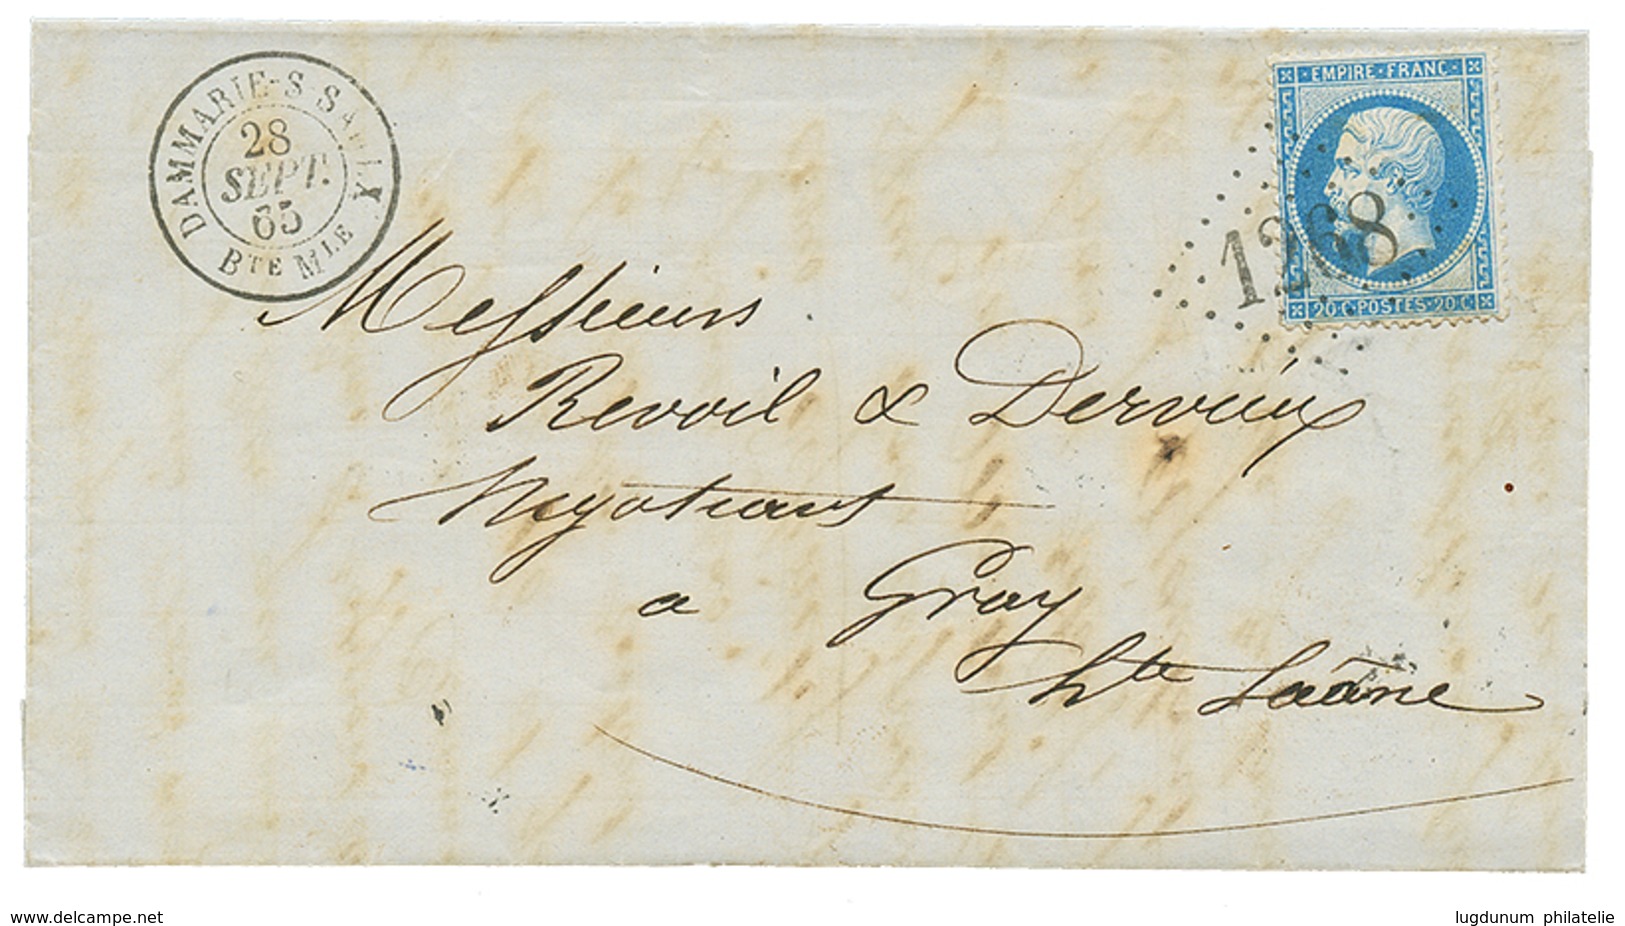 DAMMARIE-S-SAULX
28
SEPT.
65
BTE MLE
EMPIRE FRANC
1268
20 C POSTES 20 C
Messieurs
Revoil & Dervieux
Negotiants
a Gray
hte Saône
www.delcampe.net
lugdunum philatelie